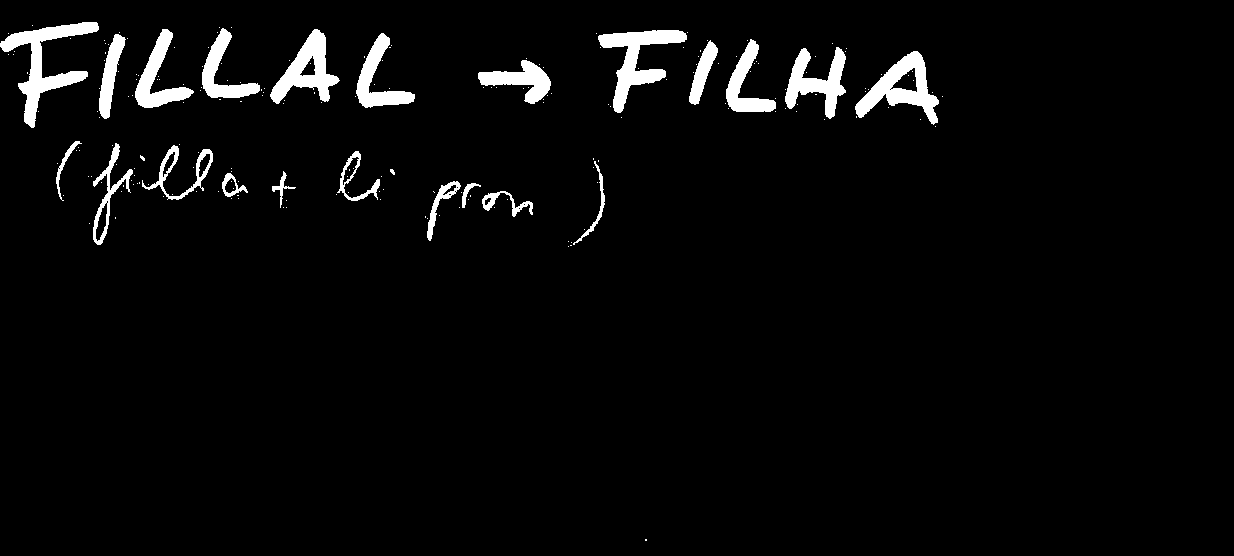 FILLAL → FILHA
(filla + li pron)